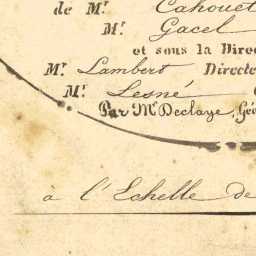 de Mr. Cahouet
Mr. Gacel
et sous la Direc
Mr. Lambert Directe
Mr. Lesné
Par Mr. Declaye, Gé
à l'Echelle de